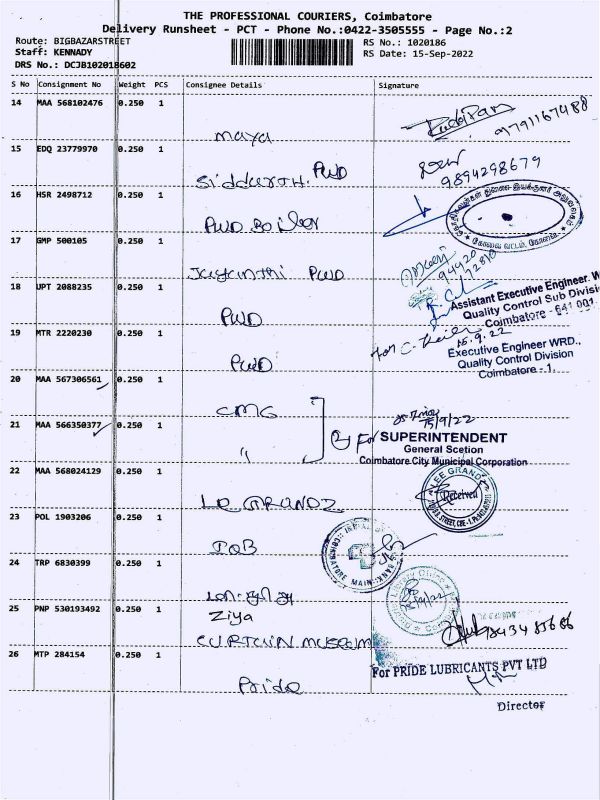 THE PROFESSIONAL COURIERS, Coimbatore
Delivery Runsheet - PCT - Phone No.:0422-3505555 - Page No.:2
Route: BIGBAZARSTREET RS No.: 1020186
Staff: KENNADY RS Date: 15-Sep-2022
DRS No.: DCJB102018602
S No Consignment No Weight PCS Consignee Details Signature
14 MAA 568102476 0.250 1
maya 9791167488
15 EDQ 23779970 0.250 1
Siddharth. PWD 9894298679
16 HSR 2498712 0.250 1
PWD
17 GMP 500105 0.250 1
Jayanthi PWD
18 UPT 2088235 0.250 1
Assistant Executive Engineer. W
Quality Control Sub Divisi
Coimbatore - 641 001
PWD
19 MTR 2220230 0.250 1
15.9.22
Executive Engineer WRD.,
Quality Control Division
Coimbatore - 1.
PWD
20 MAA 567306561 0.250 1
CMC
15/9/22
21 MAA 566350377 0.250 1
"
For SUPERINTENDENT
General Scetion
Coimbatore City Municipal Corporation
22 MAA 568024129 0.250 1
LE GRANDZ
LEE GRANDZ
Received
23 POL 1903206 0.250 1
IOB
COIMBATORE MAIN
24 TRP 6830399 0.250 1
25 PNP 530193492 0.250 1
Ziya
CURTAIN MUSEUM
26 MTP 284154 0.250 1
For PRIDE LUBRICANTS PVT LTD
Pride
Director